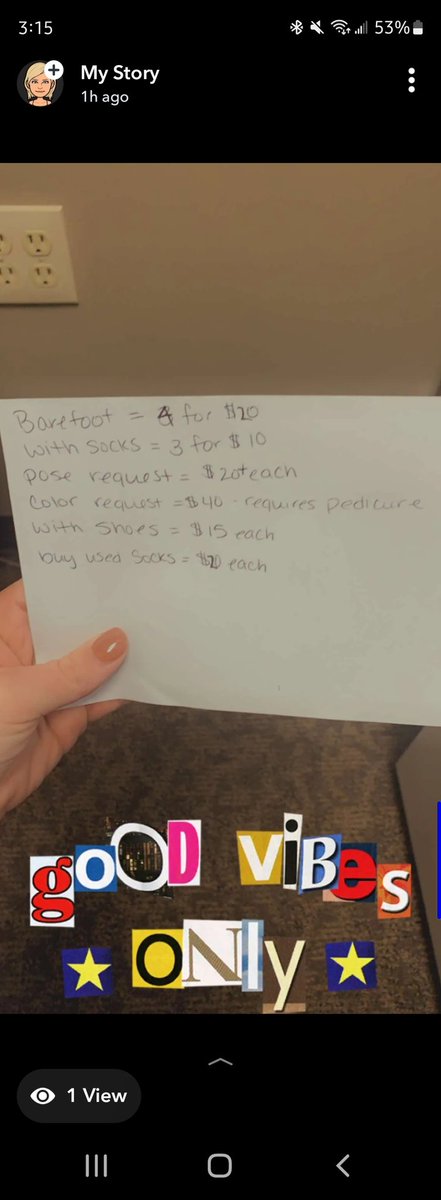 3:15 53%
My Story
1h ago
Barefoot = 4 for $20
with socks = 3 for $10
pose request = $20+each
Color request = $40 - requires pedicure
with shoes = $15 each
buy used socks = $20 each
good vibes
only
1 View